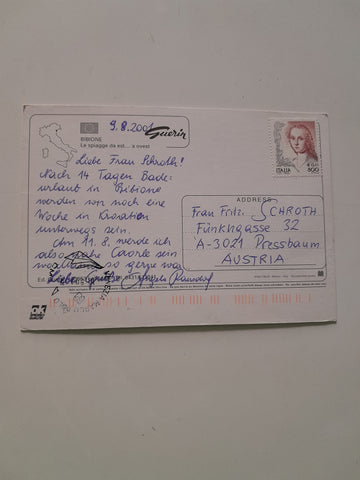 9.8.2001
Guerin
BIBIONE
Le spiagge da est... a ovest
Liebe Frau Schroth!
Nach 14 Tagen Bade-
urlaub in Bibione
werden wir noch eine
Woche in Kroatien
unterwegs sein.
Am 11.8. werde ich
also nahe Caorle sein
so gerne war.
Liebe Grüße
ITALIA
800
ADDRESS
Frau Fritzi SCHROTH
Fünkhgasse 32
A-3021 Pressbaum
AUSTRIA